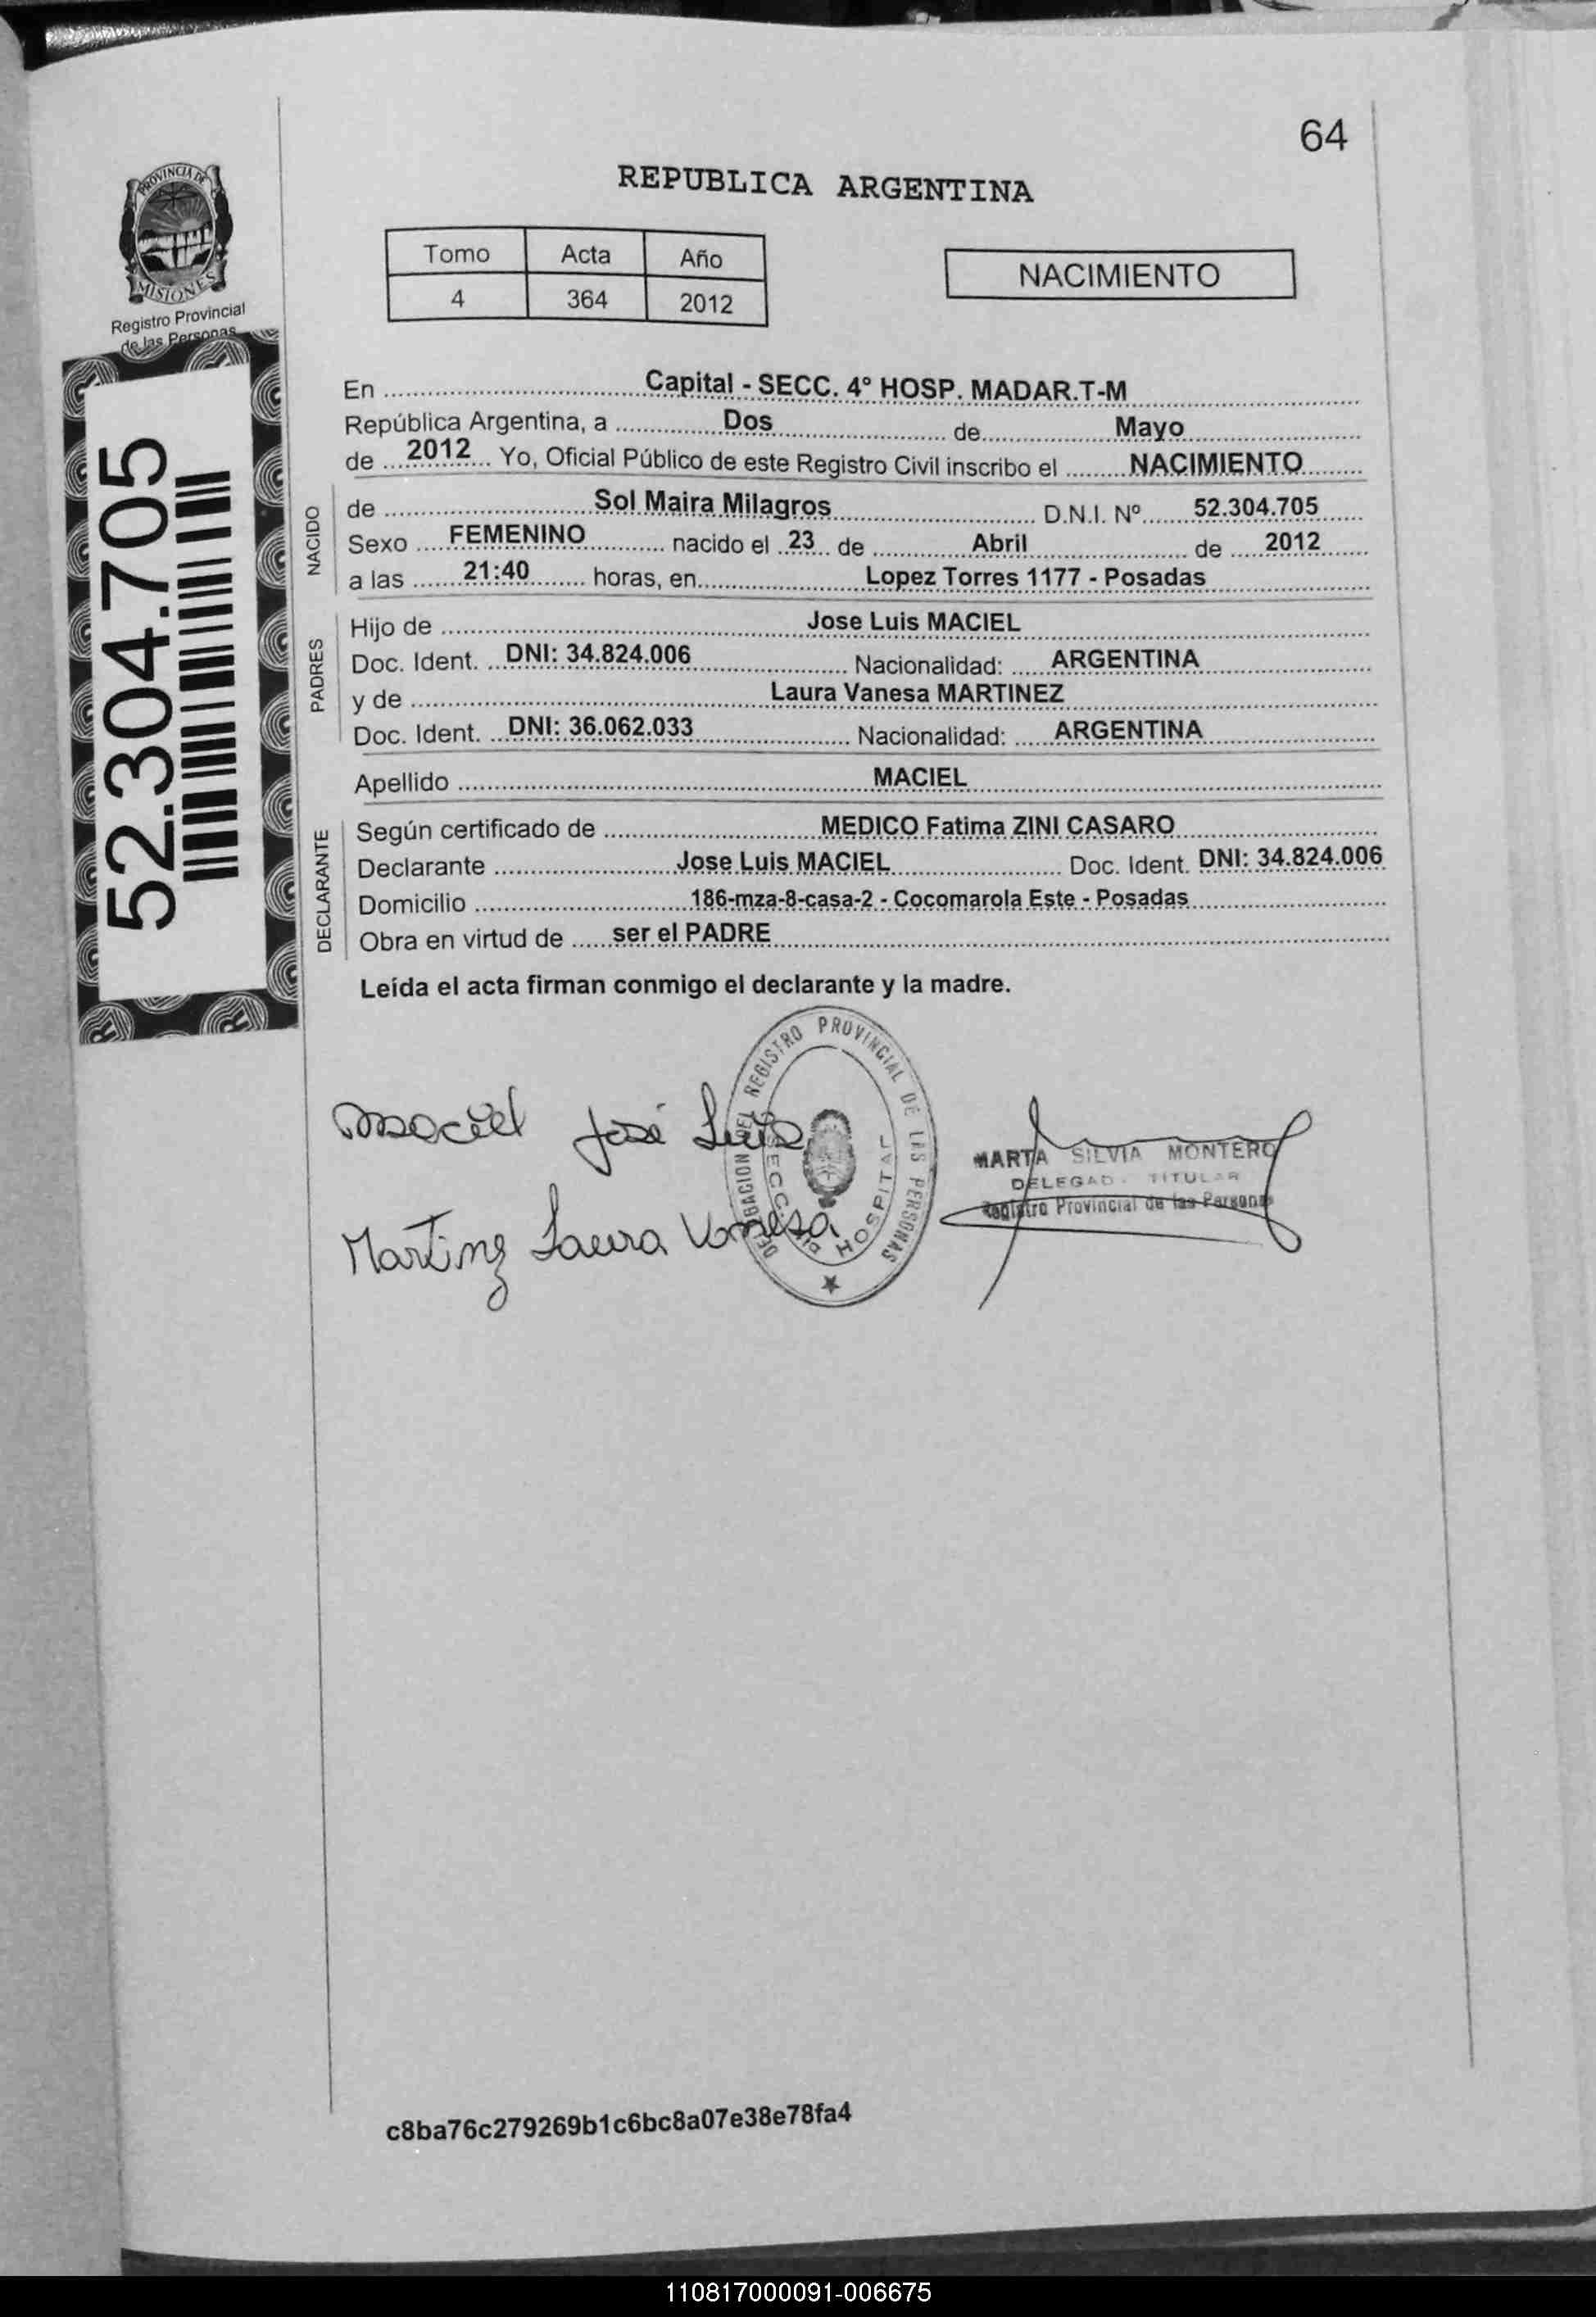 64
PROVINCIA DE
MISIONES
Registro Provincial
de las Personas
52.304.705
REPUBLICA ARGENTINA
Tomo Acta Año
4 364 2012
NACIMIENTO
En ........ Capital - SECC. 4º HOSP. MADAR.T-M
República Argentina, a ........ Dos ........ de ........ Mayo
de .... 2012 ... Yo, Oficial Público de este Registro Civil inscribo el ........ NACIMIENTO
NACIDO
de ........ Sol Maira Milagros ........ D.N.I. Nº ....... 52.304.705
Sexo .... FEMENINO ........ nacido el .. 23 .. de ........ Abril ........ de .... 2012
a las ....... 21:40 ....... horas, en ........ Lopez Torres 1177 - Posadas
PADRES
Hijo de ........ Jose Luis MACIEL
Doc. Ident. ... DNI: 34.824.006 ........ Nacionalidad: ..... ARGENTINA
y de ........ Laura Vanesa MARTINEZ
Doc. Ident. ... DNI: 36.062.033 ........ Nacionalidad: ..... ARGENTINA
Apellido ........ MACIEL
DECLARANTE
Según certificado de ........ MEDICO Fatima ZINI CASARO
Declarante ........ Jose Luis MACIEL ........ Doc. Ident. DNI: 34.824.006
Domicilio ........ 186-mza-8-casa-2 - Cocomarola Este - Posadas
Obra en virtud de ..... ser el PADRE
Leída el acta firman conmigo el declarante y la madre.
Maciel José Luis
Martinez Laura Vanesa
DELEGACION DEL REGISTRO PROVINCIAL DE LAS PERSONAS
HOSPITAL
MARTA SILVIA MONTERO
DELEGAD. TITULAR
Registro Provincial de las Personas
c8ba76c279269b1c6bc8a07e38e78fa4
110817000091-006675